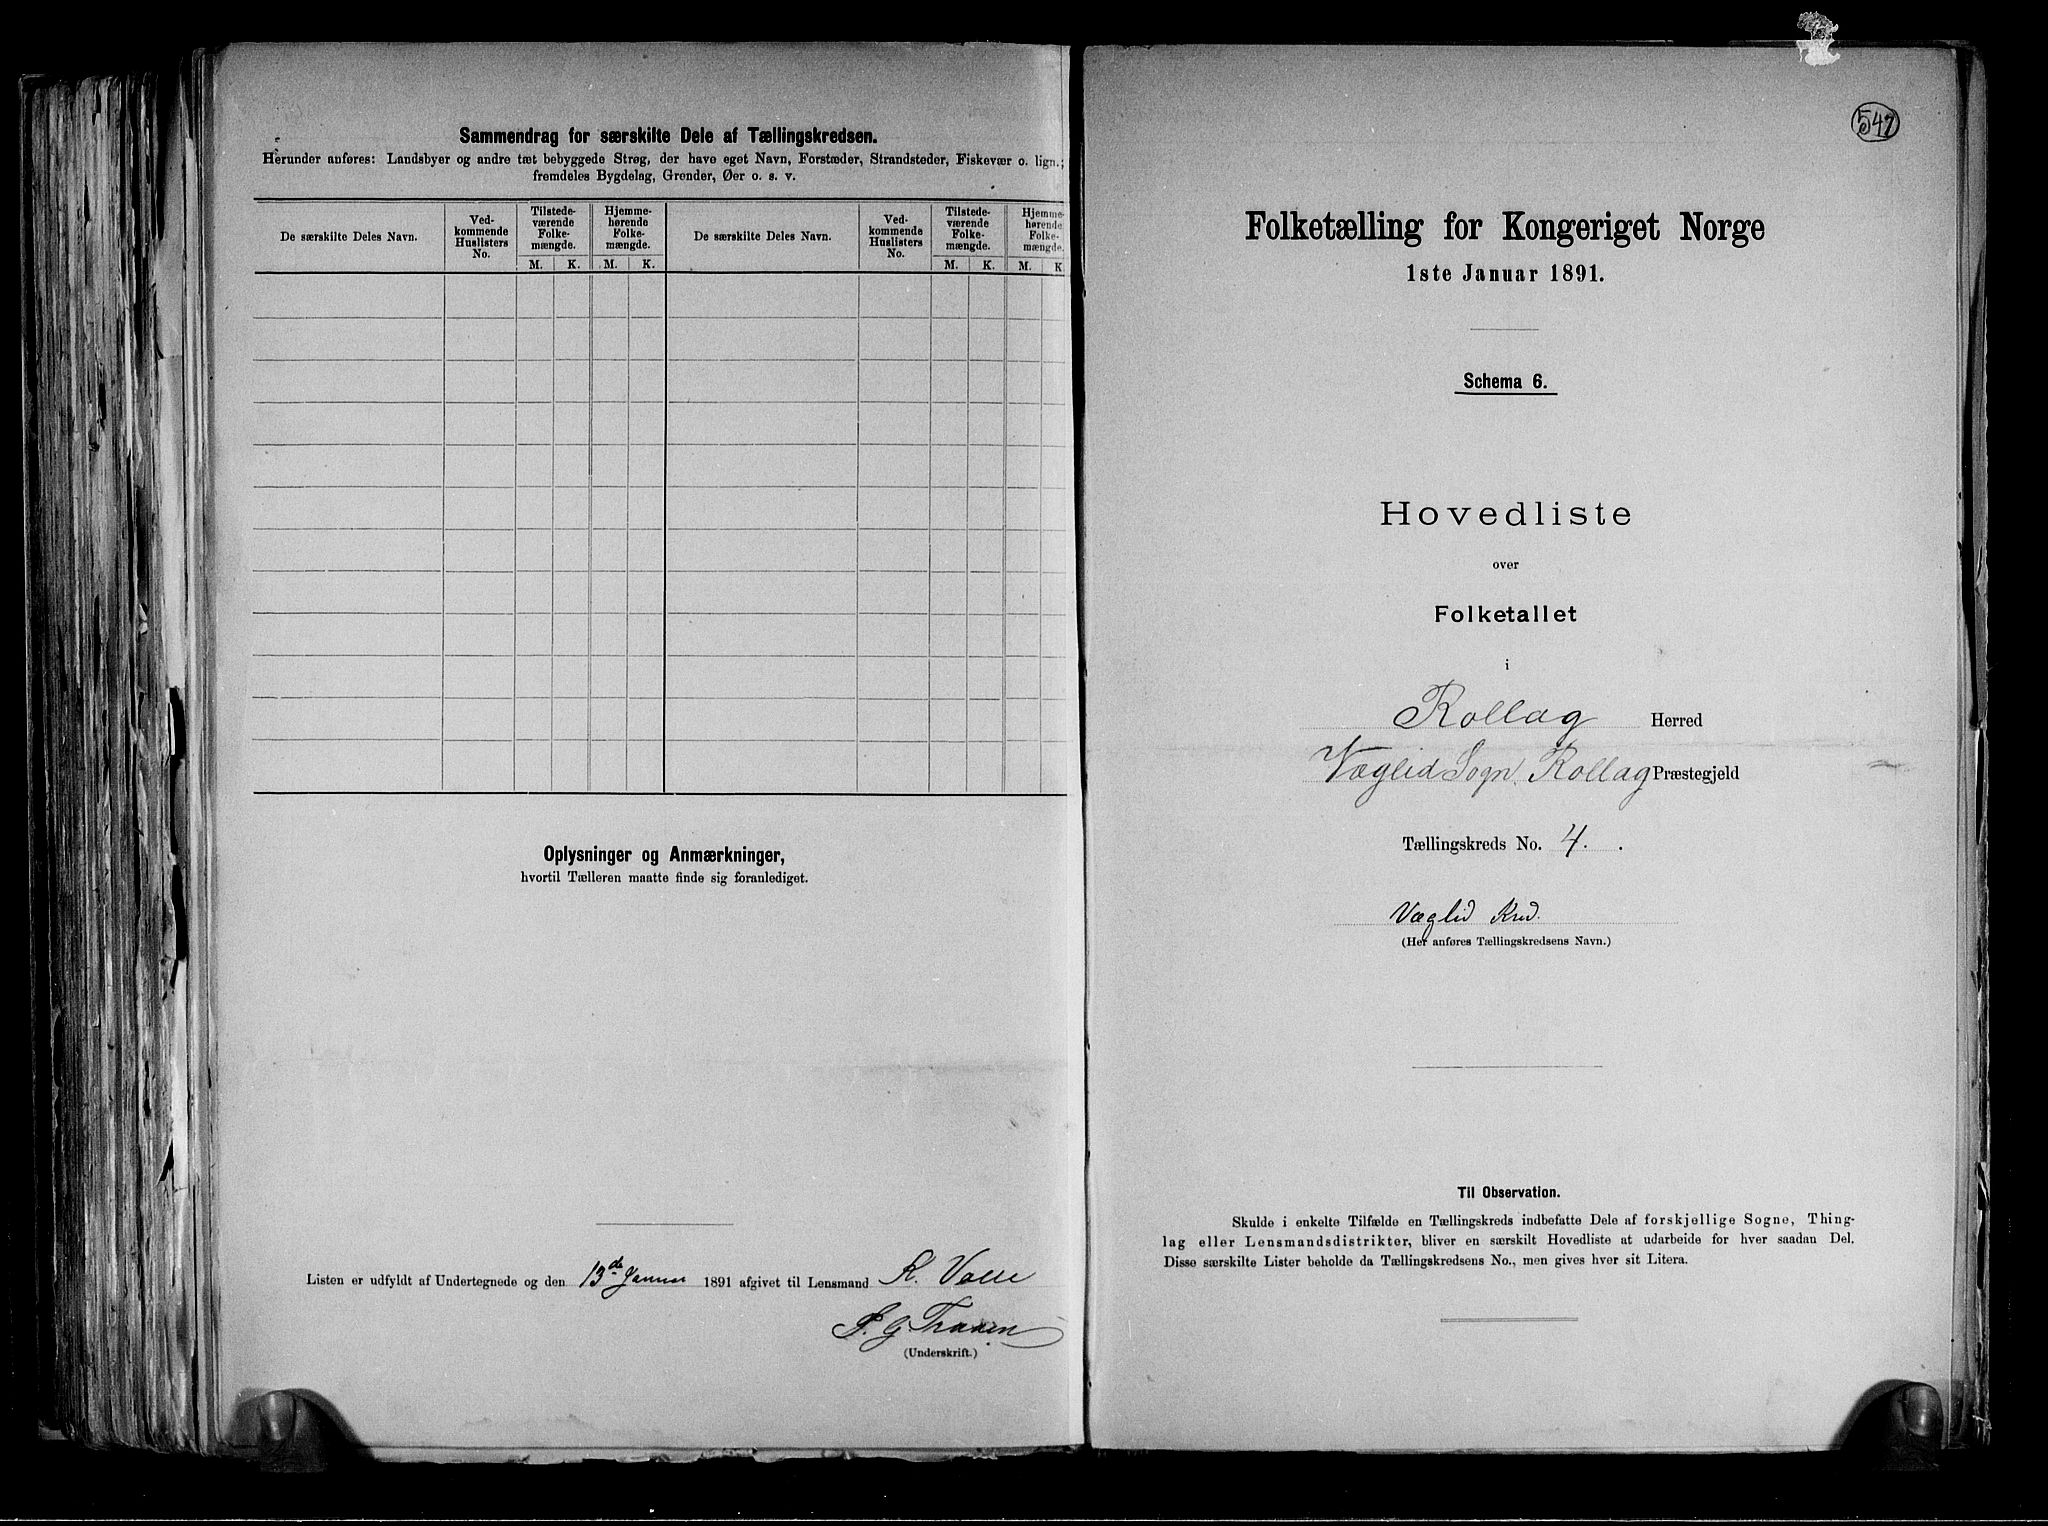 Sammendrag for særskilte Dele af Tællingskredsen.
Herunder anføres: Landsbyer og andre tæt bebyggede Strøg, der have eget Navn, Forstæder, Strandsteder, Fiskevær o. lign.;
fremdeles Bygdelag, Grender, Øer o. s. v.
De særskilte Deles Navn.
Ved-
kommende
Huslisters
No.
Tilstede-
værende
Folke-
mængde.
M. K.
Hjemme-
hørende
Folke-
mængde.
M. K.
De særskilte Deles Navn.
Ved-
kommende
Huslisters
No.
Tilstede-
værende
Folke-
mængde.
M. K.
Hjemme-
hørende
Folke-
mængde.
M. K
Oplysninger og Anmærkninger,
hvortil Tælleren maatte finde sig foranlediget.
Listen er udfyldt af Undertegnede og den 13de Januar 1891 afgivet til Lensmand K. Valle
G. Traaen
(Underskrift.)
547
Folketælling for Kongeriget Norge
1ste Januar 1891.
Schema 6.
Hovedliste
over
Folketallet
i
Rollag Herred
Væglid Sogn, Rollag Præstegjeld
Tællingskreds No. 4. .
Væglid Kred.
(Her anføres Tællingskredsens Navn.)
Til Observation.
Skulde i enkelte Tilfælde en Tællingskreds indbefatte Dele af forskjellige Sogne, Thing-
lag eller Lensmandsdistrikter, bliver en særskilt Hovedliste at udarbeide for hver saadan Del.
Disse særskilte Lister beholde da Tællingskredsens No., men gives hver sit Litera.